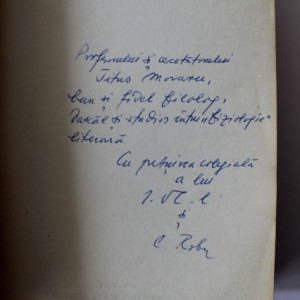 Profesorului și cercetătorului
Titus Moraru,
bun și fidel filolog,
Dascăl și studios întru "Fiziologie"
literară
Cu prețuirea colegială
a lui
și
C. Robu